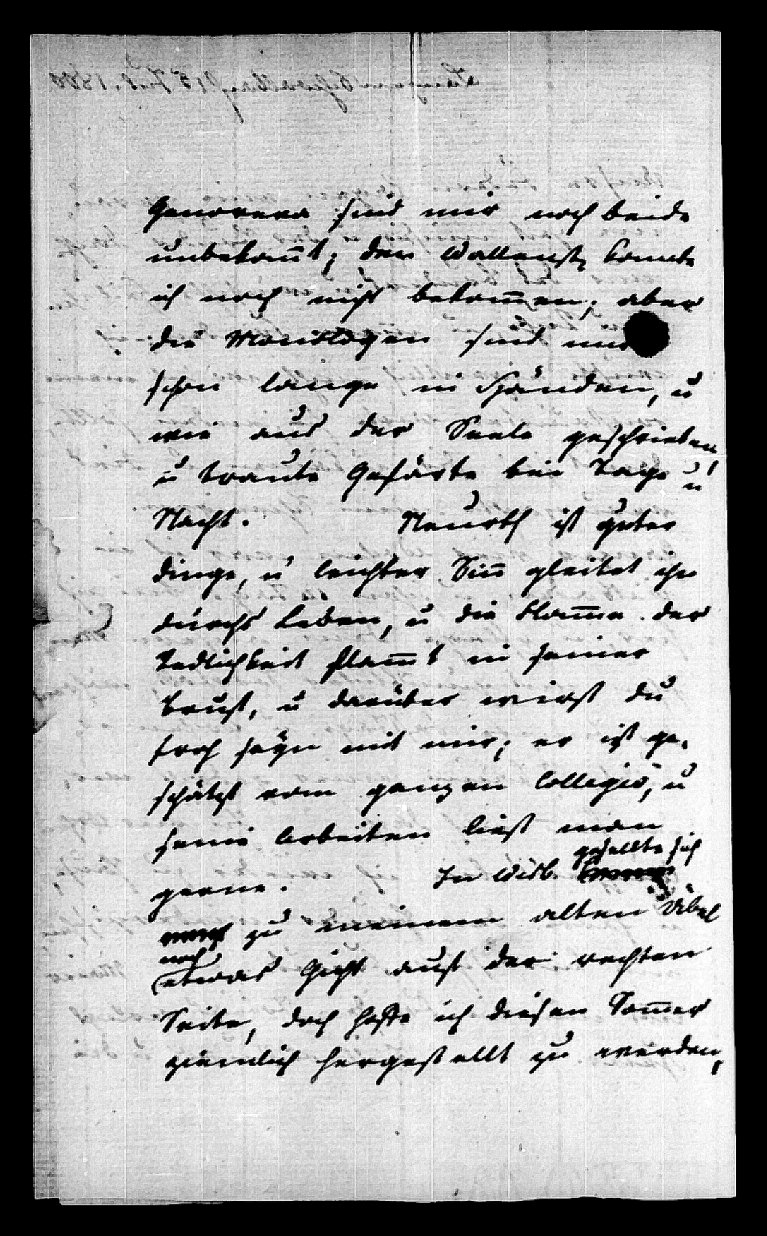 Genoveva sind mir noch beide
unbekan̄t; den Wallenst. konnte
ich noch nicht bekom̄en; aber
die Monologen sind mir
schon lange in Händen, u
wie aus der Seele geschrieben,
u traute Gefärte bei Tage u
Nacht. Neurth ist guter
dinge, u leichter Sin̄ gleitet ihn
durchs Leben, u die Flam̄e der
Redlichkeit flam̄t in seiner
Brust, u darüber wirst du
froh seyn mit mir; er ist ge-
schätzt vom ganzen Collegio, u
seine Arbeiten liest man
gerne. In Wisb. gesellte sich
zu meinem alten Übel
noch
etwas Gicht auf der rechten
Seite, doch hoffe ich diesen Som̄er
ziemlich hergestellt zu werden,